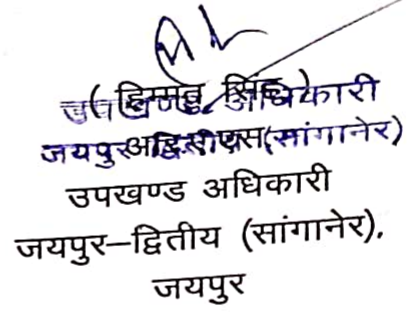 (हिम्मत सिंह)
उपखण्ड अधिकारी
जयपुर द्वितीय (सांगानेर)
उपखण्ड अधिकारी
जयपुर–द्वितीय (सांगानेर),
जयपुर